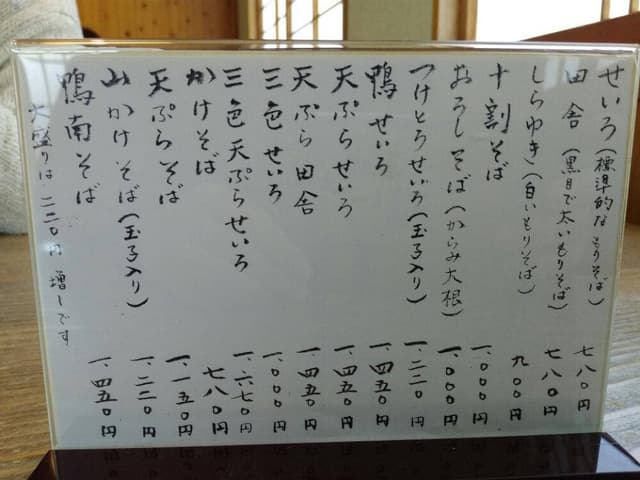 せいろ(標準的なもりそば) 七八〇円
田舎(黒目で太いもりそば) 七八〇円
しらゆき(白いもりそば) 九〇〇円
十割そば 一、〇〇〇円
おろしそば(からみ大根) 一、〇〇〇円
つけとろせいろ(玉子入り) 一、二二〇円
鴨せいろ 一、四五〇円
天ぷらせいろ 一、四五〇円
天ぷら田舎 一、四五〇円
三色せいろ 一、〇〇〇円
三色天ぷらせいろ 一、六七〇円
かけそば 七八〇円
天ぷらそば 一、一五〇円
山かけそば(玉子入り) 一、二二〇円
鴨南そば 一、四五〇円
大盛りは二二〇円増しです